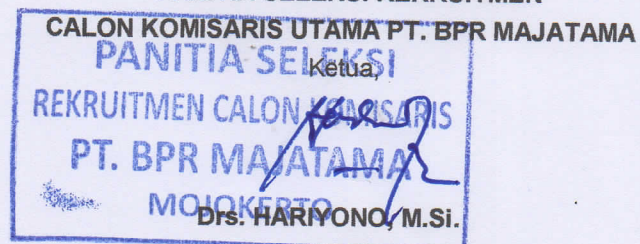 CALON KOMISARIS UTAMA PT. BPR MAJATAMA
PANITIA SELEKSI
Ketua,
REKRUITMEN CALON KOMISARIS
PT. BPR MAJATAMA
MOJOKERTO
Drs. HARIYONO, M.Si.